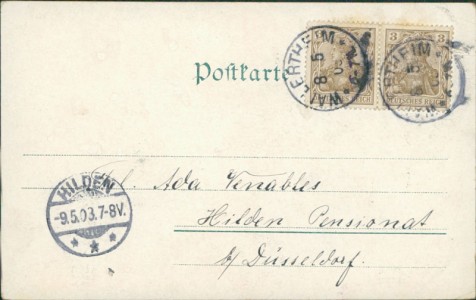 3 3
DEUTSCHES REICH
WALLERTHEIM
8 5
03
Postkarte
HILDEN
-9.5.03.7-8V.
Frl. Ada Venables
Hilden Pensionat
b/ Düsseldorf.